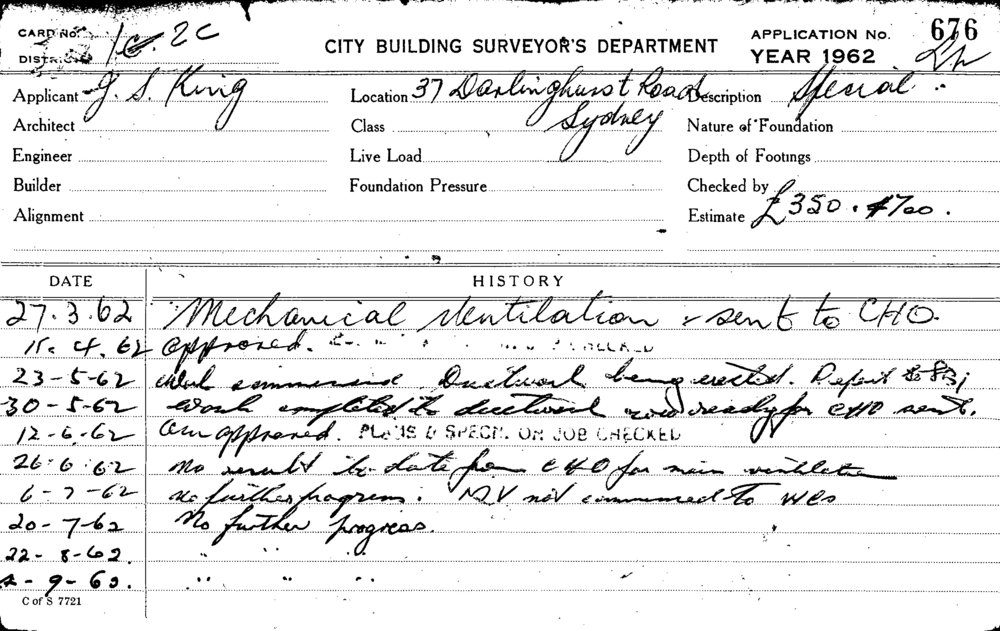 CARD No. 1C. 2C
DISTRICT
CITY BUILDING SURVEYOR'S DEPARTMENT
APPLICATION No. 676
YEAR 1962
Applicant J. S. King
Location 37 Darlinghurst Road
Sydney
Description Special
Architect
Class
Nature of Foundation
Engineer
Live Load
Depth of Footings
Builder
Foundation Pressure
Checked by
Alignment
Estimate £350.
DATE
HISTORY
27.3.62 Mechanical Ventilation - sent to CHO.
11.4.62 approved.
23-5-62 Work commenced Ductwork being erected.
30-5-62 Work completed to ductwork ready for CHO sent.
12-6-62 approved. PLANS & SPECN. ON JOB CHECKED
26.6.62 No result to date from CHO for main ventilation
6-7-62 No further progress. not commenced to WCs
20-7-62 No further progress.
22-8-62. " "
-9-62. " " "
C of S 7721